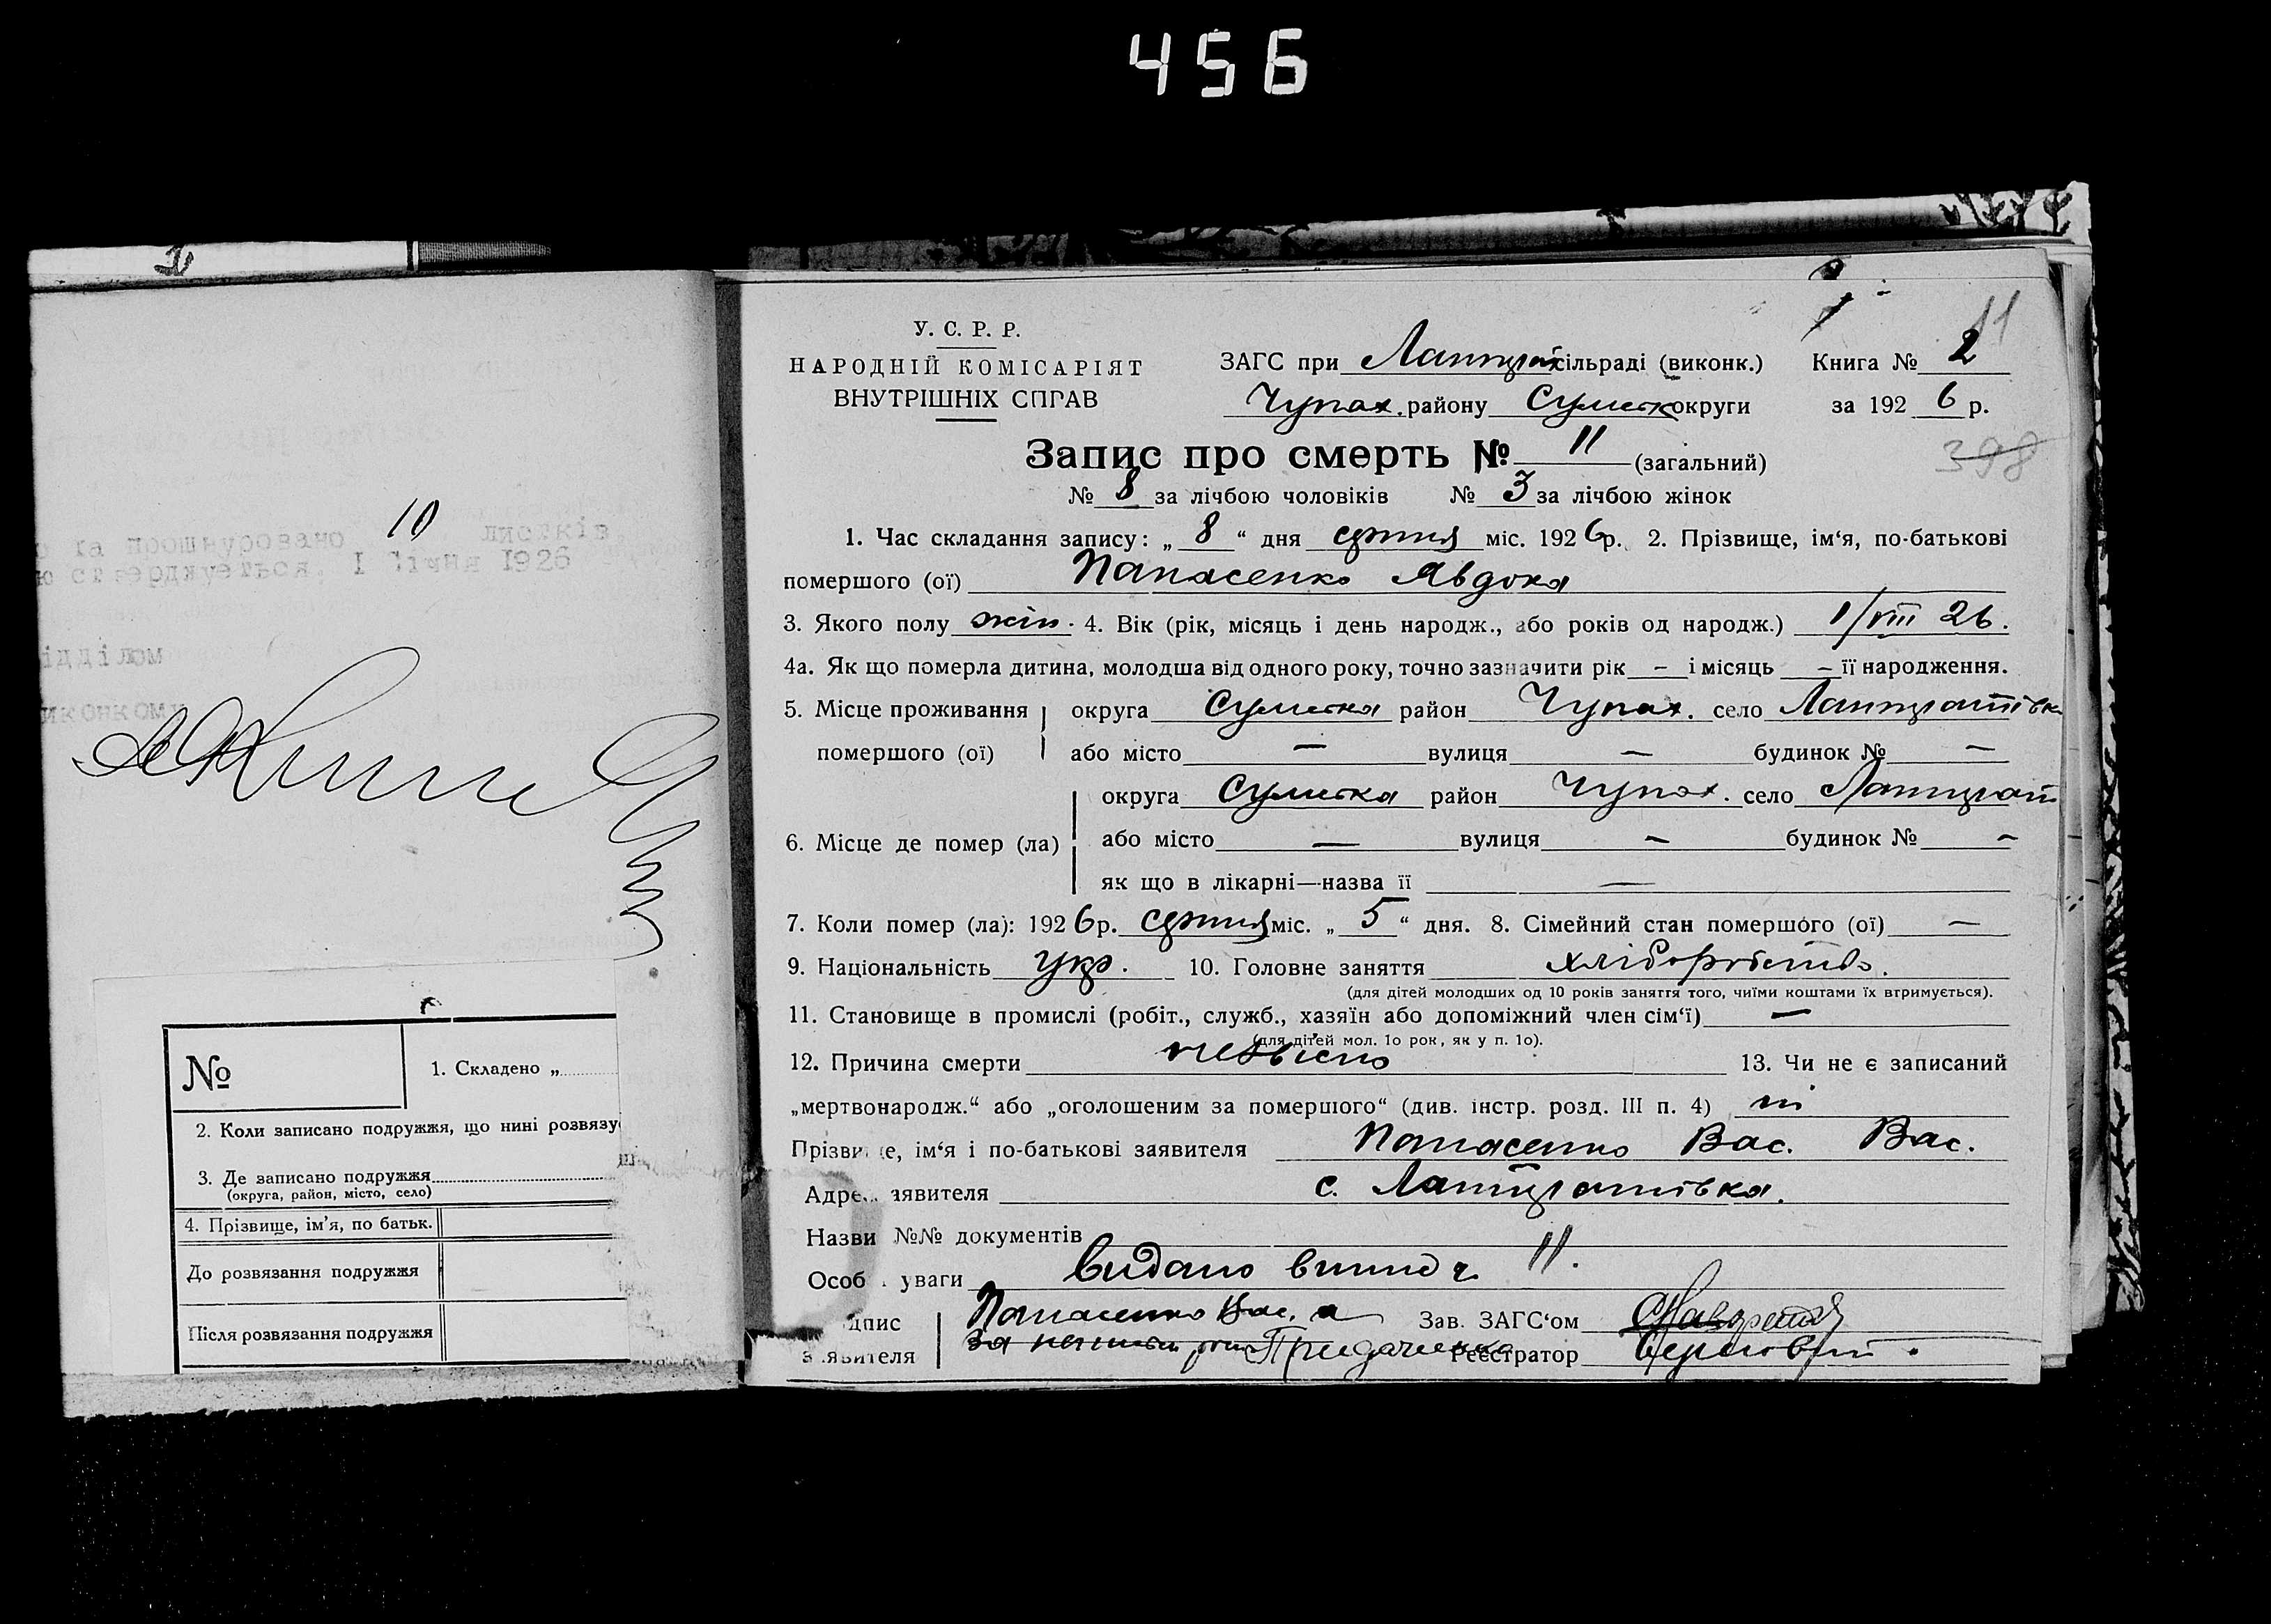 456
10
та прошнуровано листків
стверджується. 1 Січня 1926
ідділом
иконкому
№
1. Складено „
2. Коли записано подружжя, що нині розвязу
3. Де записано подружжя
(округа, район, місто, село)
4. Прізвище, ім'я, по батьк.
До розвязання подружжя
Після розвязання подружжя
11
У. С. Р. Р.
НАРОДНІЙ КОМІСАРІЯТ
ВНУТРІШНІХ СПРАВ
ЗАГС при сільраді (виконк.) Книга № 2
Чупах. району Сумськ округи за 192 6 р.
398
Запис про смерть № 11 (загальний)
№ 8 за лічбою чоловіків № 3 за лічбою жінок
1. Час складання запису: „ 8 “ дня серпня міс. 192 6 р. 2. Прізвище, ім‘я, по-батькові
помершого (ої) Панасенко Явдоха
3. Якого полу жін. 4. Вік (рік, місяць і день народж., або років од народж.) 1/VIII 26.
4а. Як що померла дитина, молодша від одного року, точно зазначити рік – і місяць – її народження.
5. Місце проживання округа Сумська район Чупах. село
помершого (ої) або місто — вулиця — будинок № —
округа Сумська район Чупах. село
6. Місце де помер (ла) або місто — вулиця — будинок № —
як що в лікарні—назва її —
7. Коли помер (ла): 192 6 р. серпня міс. „ 5 “ дня. 8. Сімейний стан помершого (ої) —
9. Національність укр. 10. Головне заняття хліборобство.
(для дітей молодших од 10 років заняття того, чиїми коштами їх втримується).
11. Становище в промислі (робіт., служб., хазяїн або допоміжний член сім‘ї) —
(для дітей мол. 1о рок, як у п. 1о).
12. Причина смерти невісно 13. Чи не є записаний
„мертвонародж.“ або „оголошеним за помершого“ (див. інстр. розд. III п. 4) ні
Прізви е, ім‘я і по-батькові заявителя Панасенко Вас. Вас.
Адре аявителя с.
Назви №№ документів
Особ уваги видано 11.
дпис Панасенко Вас. а Зав. ЗАГС‘ом
з явителя За Придаченко Реєстратор